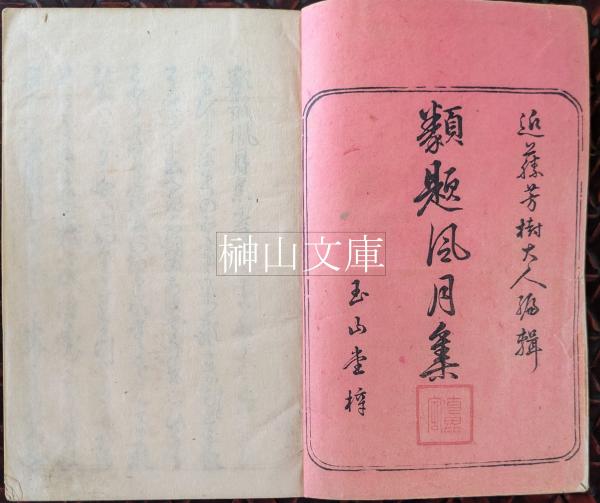 近藤芳樹大人編輯
類題風月集
玉山堂梓
榊山文庫